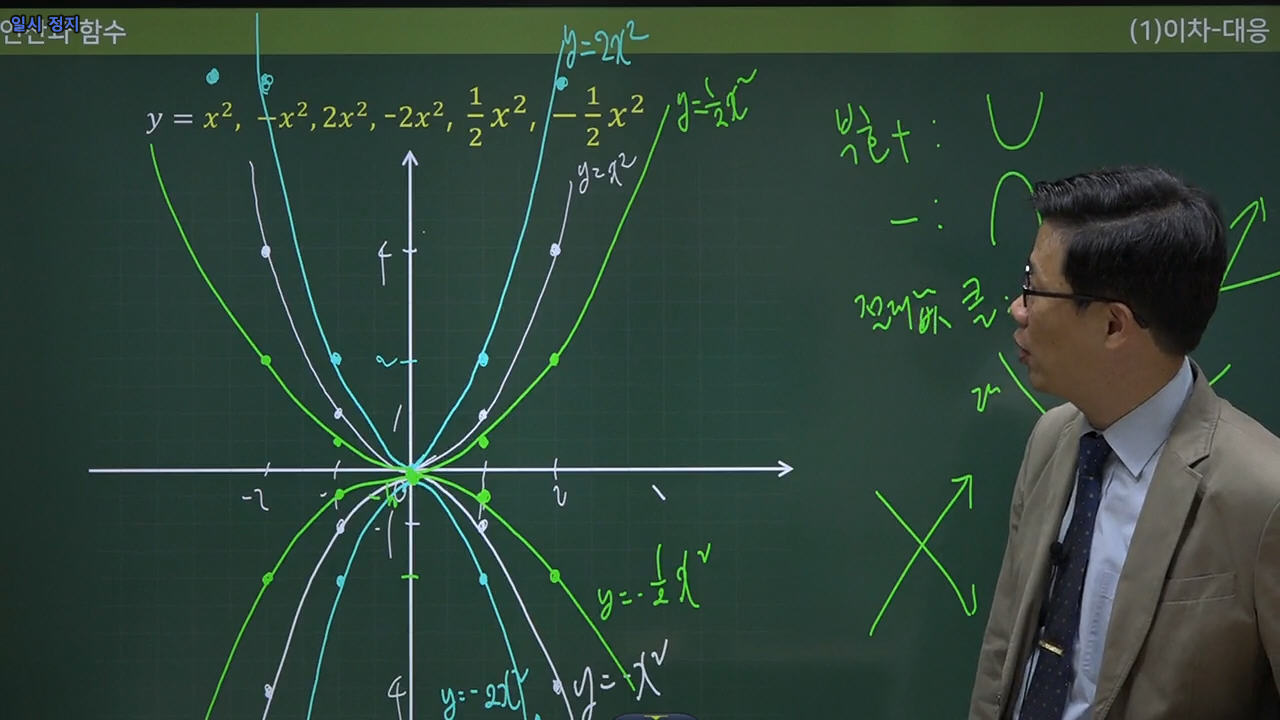 일시 정지
연산과 함수
(1)이차-대응
y = x², -x², 2x², -2x², 1/2 x², -1/2 x²
y=2x²
y=1/2 x²
y=x²
방향 + :
- :
4
2
1
-2 -1 0 1 2
-1
y=-1/2 x²
y=-x²
y=-2x²
4